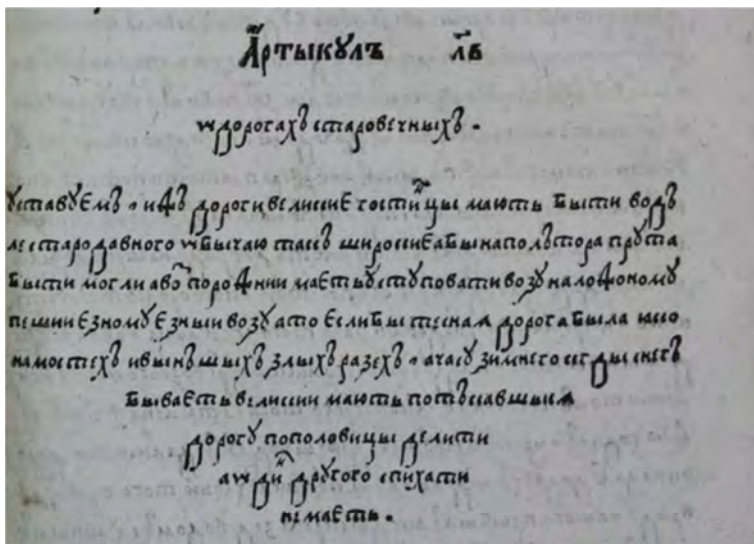 Артыкулъ л҃в
ѡ дорогахъ старовечныхъ .
уставуемъ . ижъ дороги великиє гостинцы мають быти водъ
ле стародавного ѡбычаю такъ широкиє абы на полътора прута
быти могли а воз порожнии маєть уступовати возу наложоному
пешии єзному єзныи возу а то єсли бы теснаѧ дорога была ꙗко
на мостехъ и в ыншыхъ злыхъ разехъ . а часу зимнего кгды снегъ
бываєть великии мають поткавшыиѧ
дорогу пополовицы делити
а ѡдин другого спихати
не маєть .